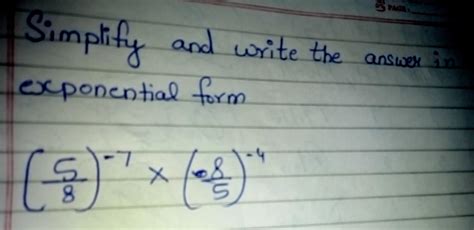 PAGE:
Simplify and write the answer in
exponential form
(5/8)^-7 × (8/5)^-4